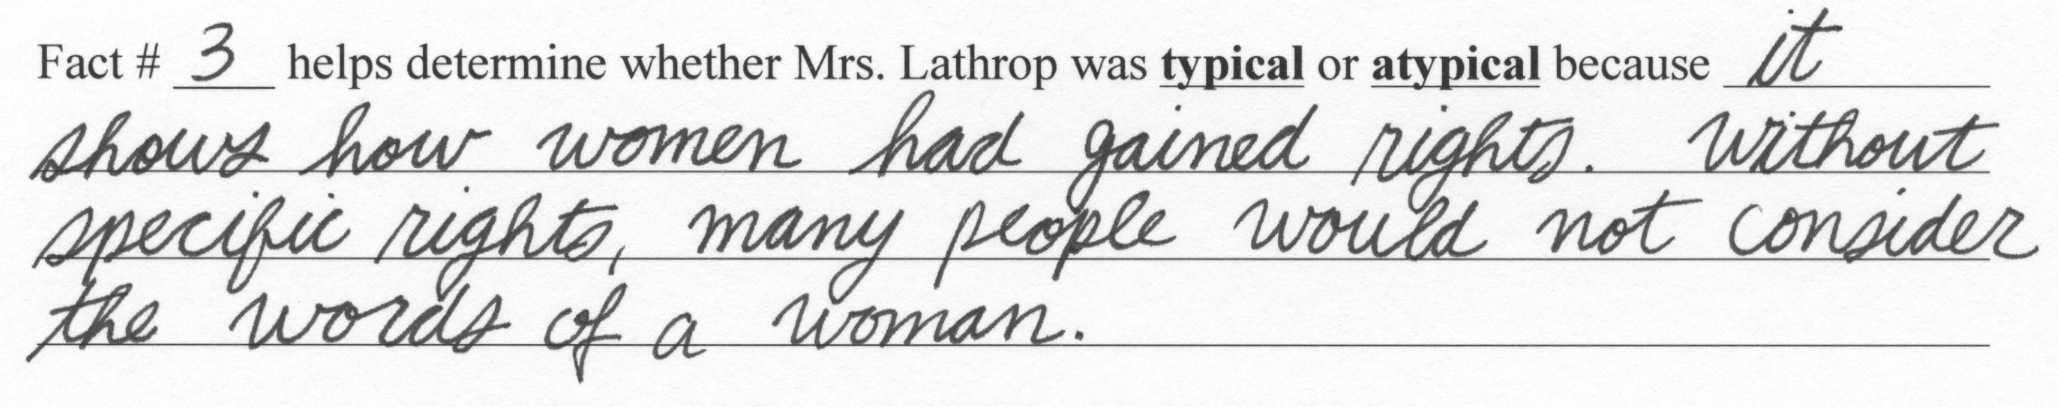 Fact # 3 helps determine whether Mrs. Lathrop was typical or atypical because it
shows how women had gained rights. Without
specific rights, many people would not consider
the words of a woman.